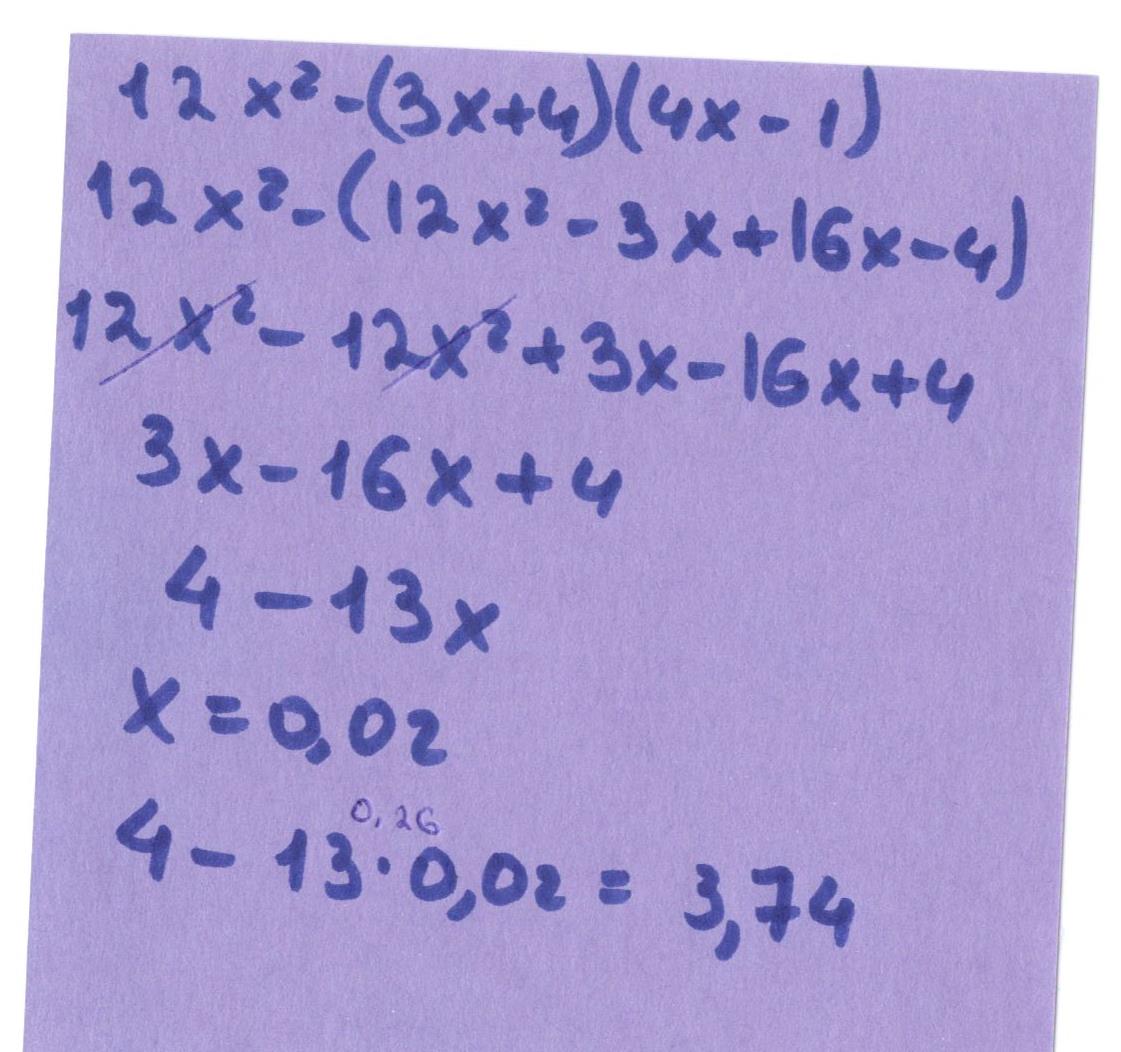 12x²-(3x+4)(4x-1)
12x²-(12x²-3x+16x-4)
12x²-12x²+3x-16x+4
3x-16x+4
4-13x
x=0,02
0,26
4-13·0,02=3,74